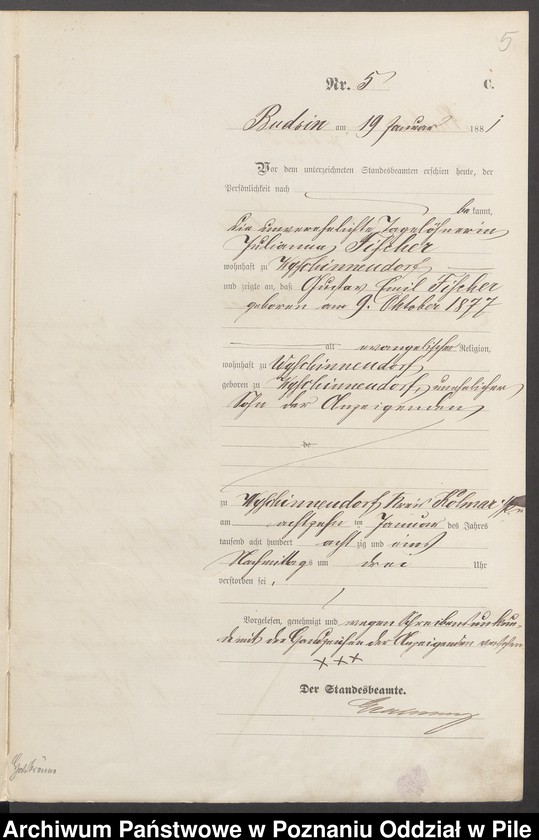 5
Nr. 5 C.
Budsin am 19 Januar 1881
Vor dem unterzeichneten Standesbeamten erschien heute, der
Persönlichkeit nach
bekannt,
die unverehelichte Tagelöhnerin
Julianna Fischer
wohnhaft zu Wyschinnendorf
und zeigte an, daß Gustav Emil Fischer
geboren am 9. Oktober 1877
alt evangelischer Religion,
wohnhaft zu Wyschinnendorf
geboren zu Wyschinnendorf, unehelicher
Sohn der Anzeigenden
de
zu Wyschinnendorf Kreis Kolmar
am achtzehn ten Januar des Jahres
tausend acht hundert achtzig und eins
Nachmittags um drei Uhr
verstorben sei,
Vorgelesen, genehmigt und wegen Schreibensunkun-
de mit der Handzeichen der Anzeigenden versehen
+++
Der Standesbeamte.
Archiwum Państwowe w Poznaniu Oddział w Pile